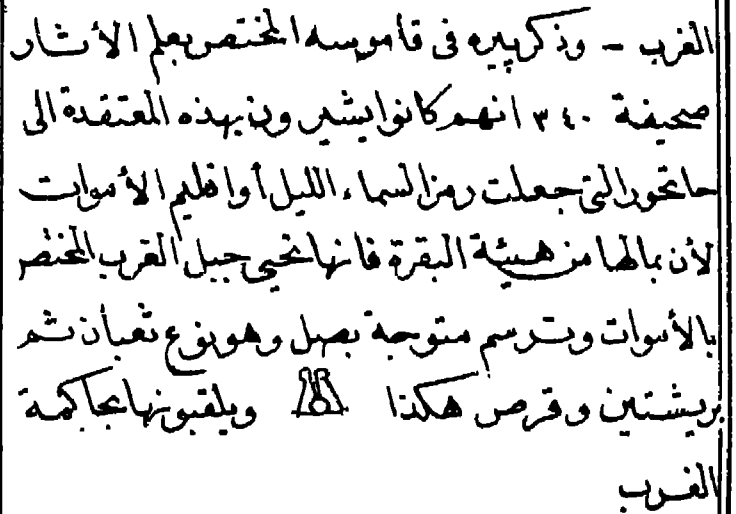 الغرب - وذكر بيره فى قاموسه المختصر بعلم الأثار
صحيفة ٣٤٠ انهم كانوا يشيرون بهذه المعتقدة الى
حاتحور التى جعلت رمزا لسماء الليل أو اقليم الأموات
لأن بمالها من هيئة البقرة فانها تحيى جبل الغرب المختص
بالأموات وترسم متوجة بصل وهو نوع ثعبان ثم
بريشتين وقرص هكذا ويلقبونها بحاكمة
الغرب